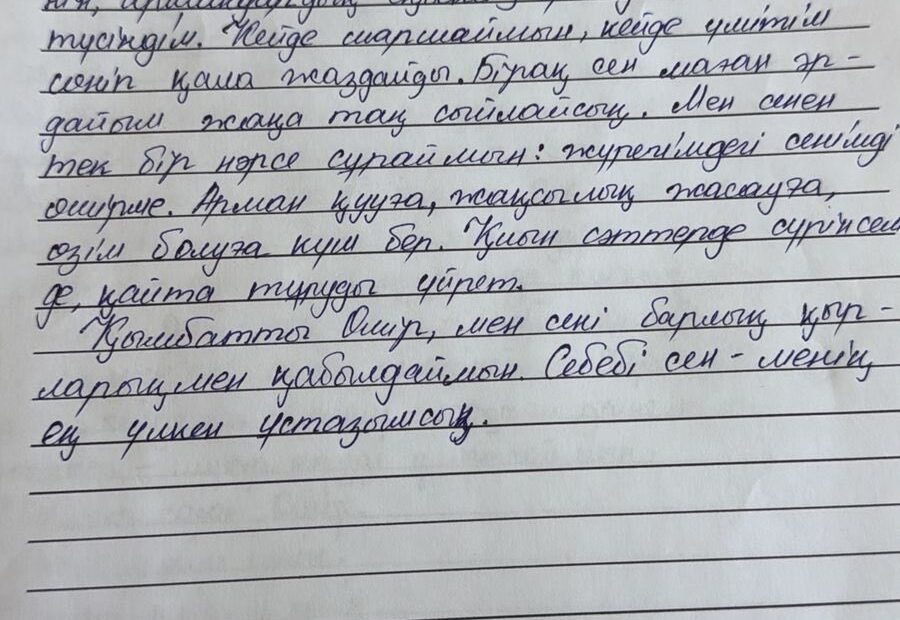 түсіндім. Кейде шаршаймын, кейде үмітім
сөніп қала жаздайды. Бірақ сен маған әр-
дайым жаңа таң сыйлайсың. Мен сенен
тек бір нәрсе сұраймын: жүрегімдегі сенімді
өшірме. Арман қууға, жақсылық жасауға,
өзім болуға күш бер. Қиын сәттерде сүрінсем
де, қайта тұруды үйрет.
Қымбатты Өмір, мен сені барлық қыр-
ларыңмен қабылдаймын. Себебі сен - менің
ең үлкен ұстазымсың.